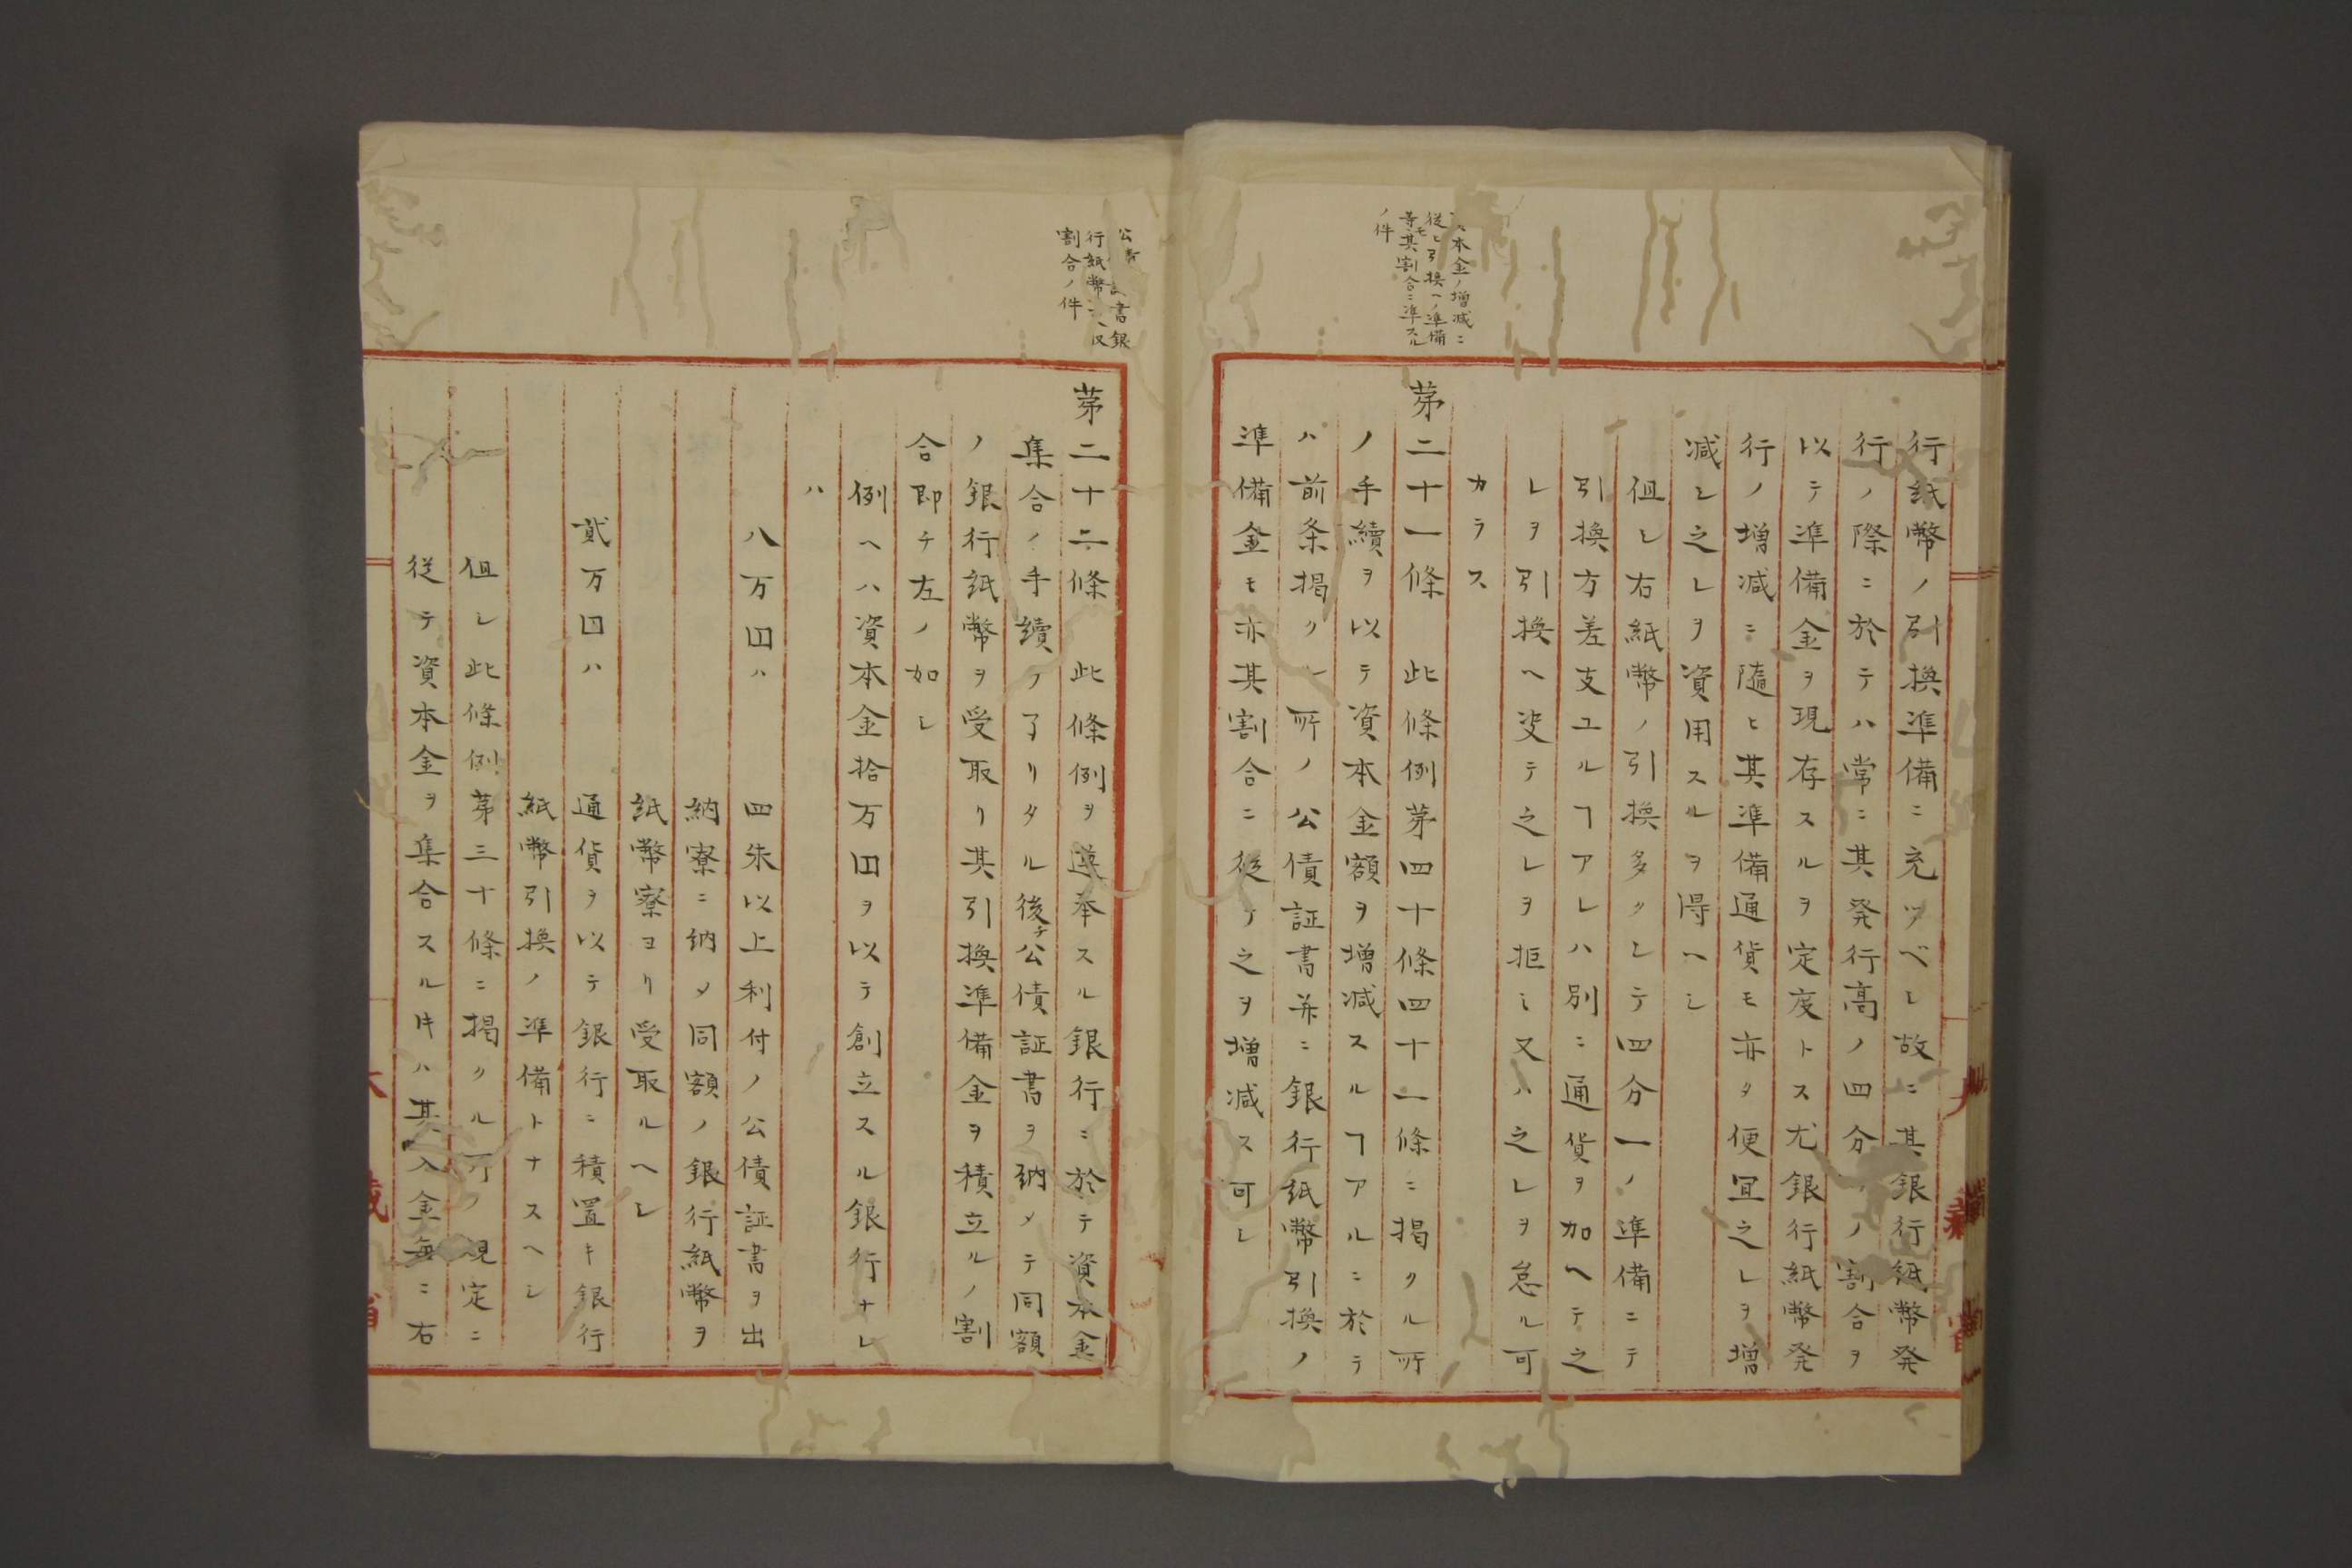 行紙幣ノ引換準備ニ充ツベシ故ニ其銀行紙幣発
行ノ際ニ於テハ常ニ其発行高ノ四分ノ割合ヲ
以テ準備金ヲ現存スルヲ定度トス尤銀行紙幣発
行ノ増減ニ随ヒ其準備通貨モ亦タ便宜之レヲ増
減シ之レヲ資用スルヲ得ヘシ
但シ右紙幣ノ引換多クシテ四分一ノ準備ニテ
引換方差支ユルヿアレハ別ニ通貨ヲ加ヘテ之
レヲ引換ヘ决テ之レヲ拒ミ又ハ之レヲ怠ル可
カラス
本金ノ増減ニ
従ヒ引換ヘノ準備
等モ其割合ニ準スル
ノ件
苐二十一條 此條例苐四十條四十一條ニ掲クル所
ノ手續ヲ以テ資本金額ヲ増減スルヿアルニ於テ
ハ前条掲クル所ノ公債証書并ニ銀行紙幣引換ノ
準備金モ亦其割合ニ従テ之ヲ増減ス可シ
公 書銀
行紙幣
割合ノ件
苐二十二條 此條例ヲ遵奉スル銀行ニ於テ資本金
集合ノ手續了リタル後チ公債証書ヲ納メテ同額
ノ銀行紙幣ヲ受取リ其引換準備金ヲ積立ルノ割
合即チ左ノ如シ
例ヘハ資本金拾万囙ヲ以テ創立スル銀行ナレ
ハ
八万囙ハ 四朱以上利付ノ公債証書ヲ出
納寮ニ納メ同額ノ銀行紙幣ヲ
紙幣寮ヨリ受取ルヘシ
貮万囙ハ 通貨ヲ以テ銀行ニ積置キ銀行
紙幣引換ノ準備トナスヘシ
但シ此條例苐三十條ニ掲クル所ノ規定ニ
従テ資本金ヲ集合スル𪜈ハ其入金毎ニ右
大藏省